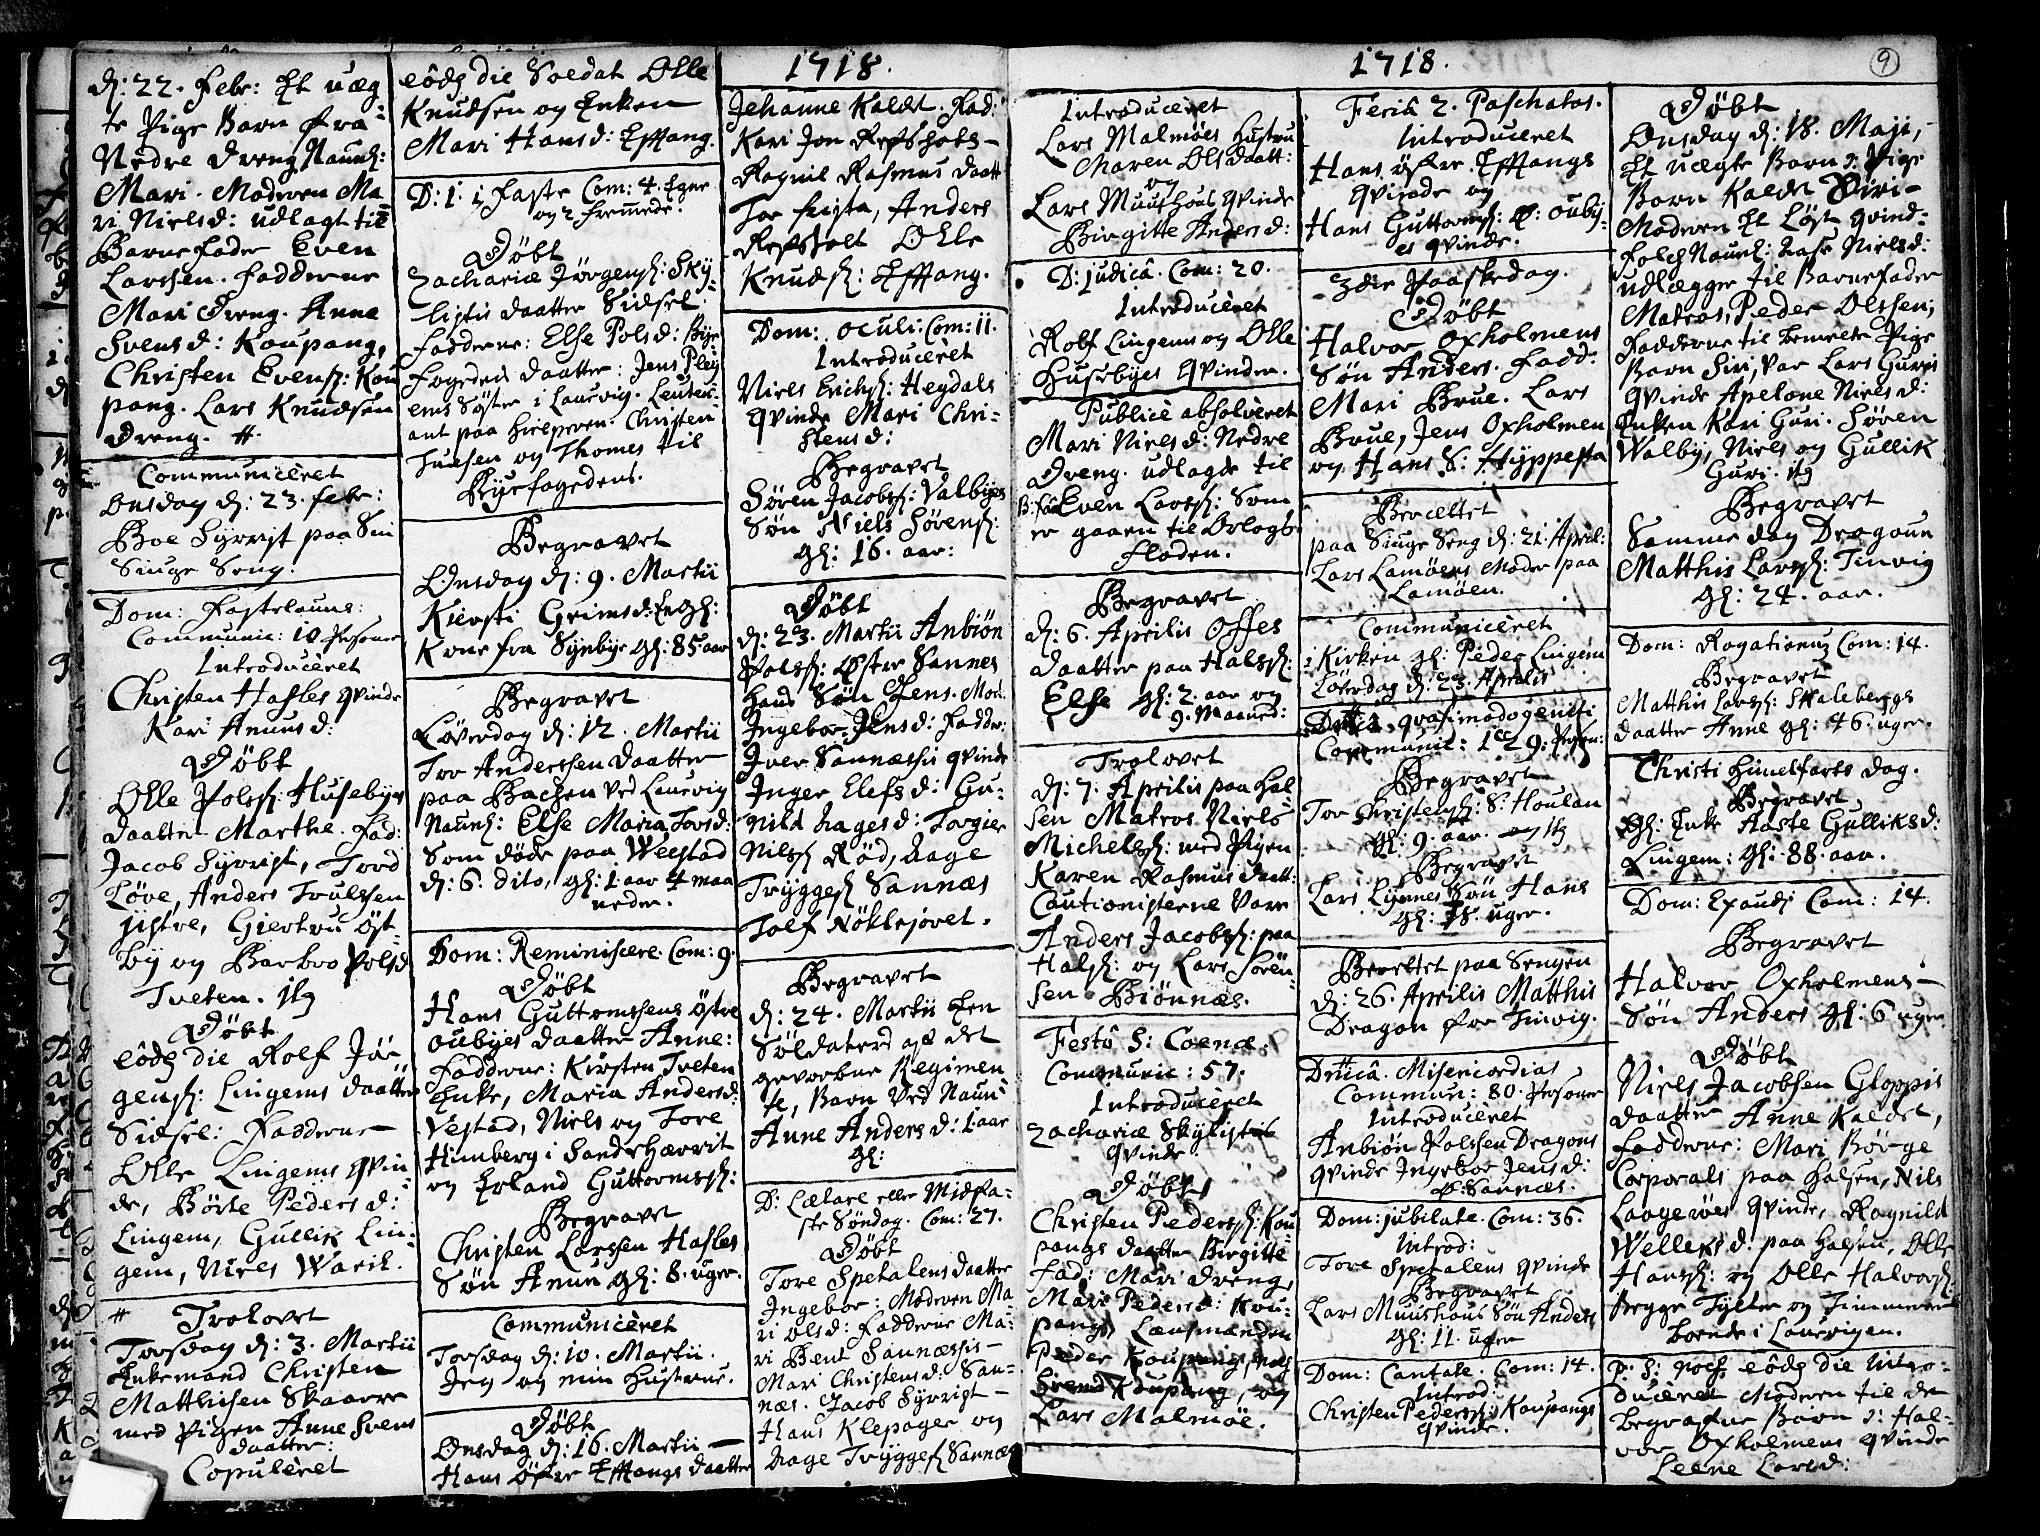 d: 22. Febr: Et uæg
te Pige Barn fra
Nedre Dreng Naunl:
Mari. Moderen Ma
ri Nielsd: udlagt til
Barnefader Even
Larssen. Fadderne
Mari Dreng. Anna
Svensd: Koupang,
Christen Evens: Kou
pang. Lars Knudsen
Dreng. #.
Communiceret
Onsdag d: 23. febr:
Boe Syvrist paa Sin
Siuge Seng.
Dom: Fastelauns:
Communic: 10 Personer
Introduceret
Christen Hasles qvinde
Kari Amunsd:
Døbt
Olle Pols: Husebyes
daatter Marthe. Fad:
Jacob Syvrist, Tord
Løve, Anders Trulssen
Jistre, Giertru Øst
by og Barbro Polsd
Tveten.
Døbt
eôdg die Rolf Jør
gens: Lingems daatter
Sidsel: Fadderne
Olle Lingems qvin
de, Børte Pedersd:
Lingem, Gullik Lin
gem, Niels Warik.
# Trolovet
Torsdag d: 3. Martii
Enkemand Christen
Matthisen Skaarre
med Pigen Anne Svens
daatter:
Copuleret
eôdg die Soldat Olle
Knudsen og Enken
Mari Hansd: Efftang.
D: 1. i Faste Com: 4. Egne
og 2 fremmede.
Døbt
Zachariæ Jørgens: Sky
listis daatter Sidsel
Fadderne: Else Polsd: Bye
fogedens daatter: Jens Pley
ems Søster i Laurvig. Leuten
ant paa Hielperen. Christen
Tuesen og Thomes til
Byefogedens.
Begravet
Onsdag d: 9. Martii
Kiersti Grimsd: Engl:
Kone fra Synbye gl: 85. aar
Begravet
Løverdag d: 12. Martii
Tor Anderssen daatter
paa Bachen ved Laurvig
Naunl: Else Maria Torsd:
Som døde paa Weestad
d: 6. dito, gl: 1 aar 4 maa
neder.
Dom: Reminiscere Com: 9.
Døbt
Hans Guttormsens Østre
oubyes daatter Anne:
Fadderne: Kirsten Tveten
Enke, Maria Andersd:
Vestad, Niels og Tore
Himberg i Sandehærrit
og Erland Guttorms:
Begravet
Christen Larssen Hasles
Søn Amun gl: 8. uger.
Communiceret
Torsdag d: 10. Martii.
Jeg og min Hustrue.
Døbt
Onsdag d: 16. Martii
Hans Øfre Efftangs daatter
1718.
Jehanne Kaldt. Fad:
Kari Jon Refsholt
Ragnil Rasmus daatt
Tor frista, Anders
Refsholt Olle
Knuds: Efftang.
Dom: oculi: Com: 11.
Introduceret
Niels Erichs: Heydals
qvinde Mari Chri
stensd:
Begravet
Søren Jacobs: Valbyes
Søn Niels Sørens:
gl: 16. aar:
Døbt
d: 23. Martii Anbiøn
Pols: Østre Sannes
hans Søn Jens. Mod.
Ingebor Jensd: Fadder
Iver Sannæssis qvinde
Inger Elefsd: Gu
nild Aagesd: Torgier
Nils: Rød, Aage
Trygges: Sannæs
Tolf Nøklejøvet.
Begravet
d: 24. Martii Een
Søldaterd af det
gevorbne Regimen
te, Barn ved Naun
Anne Andersd: 1 aar
gl:
D: Lætare eller Midfa
ste Søndag. Com: 27.
Døbt
Tore Spetalens daatter
Ingebor: Moderen Ma
ri olsd: Fadderne Ma
ri Bent Sannæssis
Mari Christensd: San
næs. Jacob Syvrist
Hans Klepager og
Aage Trygges: Sannæs
1718.
9
Introduceret
Lars Malmøes Hustru
Maren Ols daatt:
og
Lars Muushous qvinde
Birgitte Andersd:
D: judicâ. Com: 20.
Introduceret
Rolf Lingems og Olle
Husebyes qvinder.
Publicè absolveret
Mari Nielsd: Nedre
Dreng. udlagde til
B: fâr Even Lars: Som
er gaaen til Orlogs
floden.
Begravet
d: 6. Aprilis Offes
daatter paa Hals:
Else gl: 2. aar og
9. Maaned:
Trolovet
d: 7. Aprilis paa Hal
sen Matros Niels
Michels: med Pigen
Karen Rasmus daatt:
Cautionisterne vare
Anders Jacobs: paa
Hals: og Lars Søren
sen Biønnæs.
Festô S: Coenæ.
Communic: 57.
Introduceret
Zachariæ Skylistis
qvinde
Døbt
Christen Peders: Kou
pangs daatter Birgitte
Fad: Mari Dreng,
Mari Pedersd: Kou
pang, Lænsmanden
Peder Koupang,
Svend Koupang, og
Lars Malmøe.
Feriâ 2. Paschatos.
Introduceret
Hans øfre Efftangs
qvinde og
Hans Guttorms: Ø: ouby
es qvinde.
3die Paaskedag.
Døbt
Halvor Oxholmens
Søn Anders. Fadd:
Mari Brue. Lars
Brue, Jens Oxholmen
og Hans S: Hyppesta
Berættet
paa Siuge Seng d: 21. April:
Lars Lamøens Moder paa
Lamøen.
Communiceret
i Kirken gl: Peder Lingem
Løverdag d: 23. Aprilis
quasimodogeniti
Communic: 129. Person:
Begravet
Tor Christens: S: Houlan
gl: 9. aar. og
Begravet
Lars Lynnes Søn Hans
gl: 18. uger.
Berettet paa Sengen
d: 26. Aprilis Matthis
Dragon for Tinvig.
Dnicâ. Misericordias
Commun: 80. Personer
Introduceret
Anbiøn Polssen Dragons
qvinde Ingebor Jensd:
Ø: Sannæs.
Dom: jubilate. Com: 36.
Introd:
Tore Spetalens qvinde
Begravet
Lars Muushous Søn Anders
gl: 11. uger
Dom: Cantate. Com: 14.
Introd:
Christen Peders: Koupangs
qvinde.
Døbt
Onsdag d: 18. Maji,
Et uægte Barn ɔ: Pige
Barn Kaldt Siri
Moderen Et Løst qvind
folch Naunl: Aase Nielsd:
udlægger til Barnefader
Matros, Peder Olssen,
Fadderne til bemelte Pige
Barn Siri, var Lars Guris
qvinde Apelone Nielsd:
Enken Kari Guri. Søren
Walby, Niels og Gullik
Guri.
Begravet
Samme dag Dragoun
Matthis Lars: Tinvig
gl: 24. aar.
Dom: Rogationum Com: 14.
Begravet
Matthis Lars: Skalebergs
daatter Anne gl: 46. uger.
Christi Himelfarts dag.
Begravet
gl: Enke Aaste Gulliksd:
Lingem: gl: 88. aar.
Dom: Exaudi Com: 14.
Begravet
Halvor Oxholmens
Søn Anders gl: 6 uger
Døbt
Niels Jacobsen Gloppis
daatter Anne Kaldet,
Fadderne: Mari Børge
Corporals paa Halsen, Nils
Laagerøes qvinde, Ragnild
Wellersd. paa Halsen, Olle
Hans: og Olle Halvors:
Begge Tylter og Timmermænd
boende i Laurvigen.
P: S: eôdg die intro
duceret Moderen til den
begrafne Barn ɔ: Hal
vor Oxholmens qvinde
Leene Larsd: